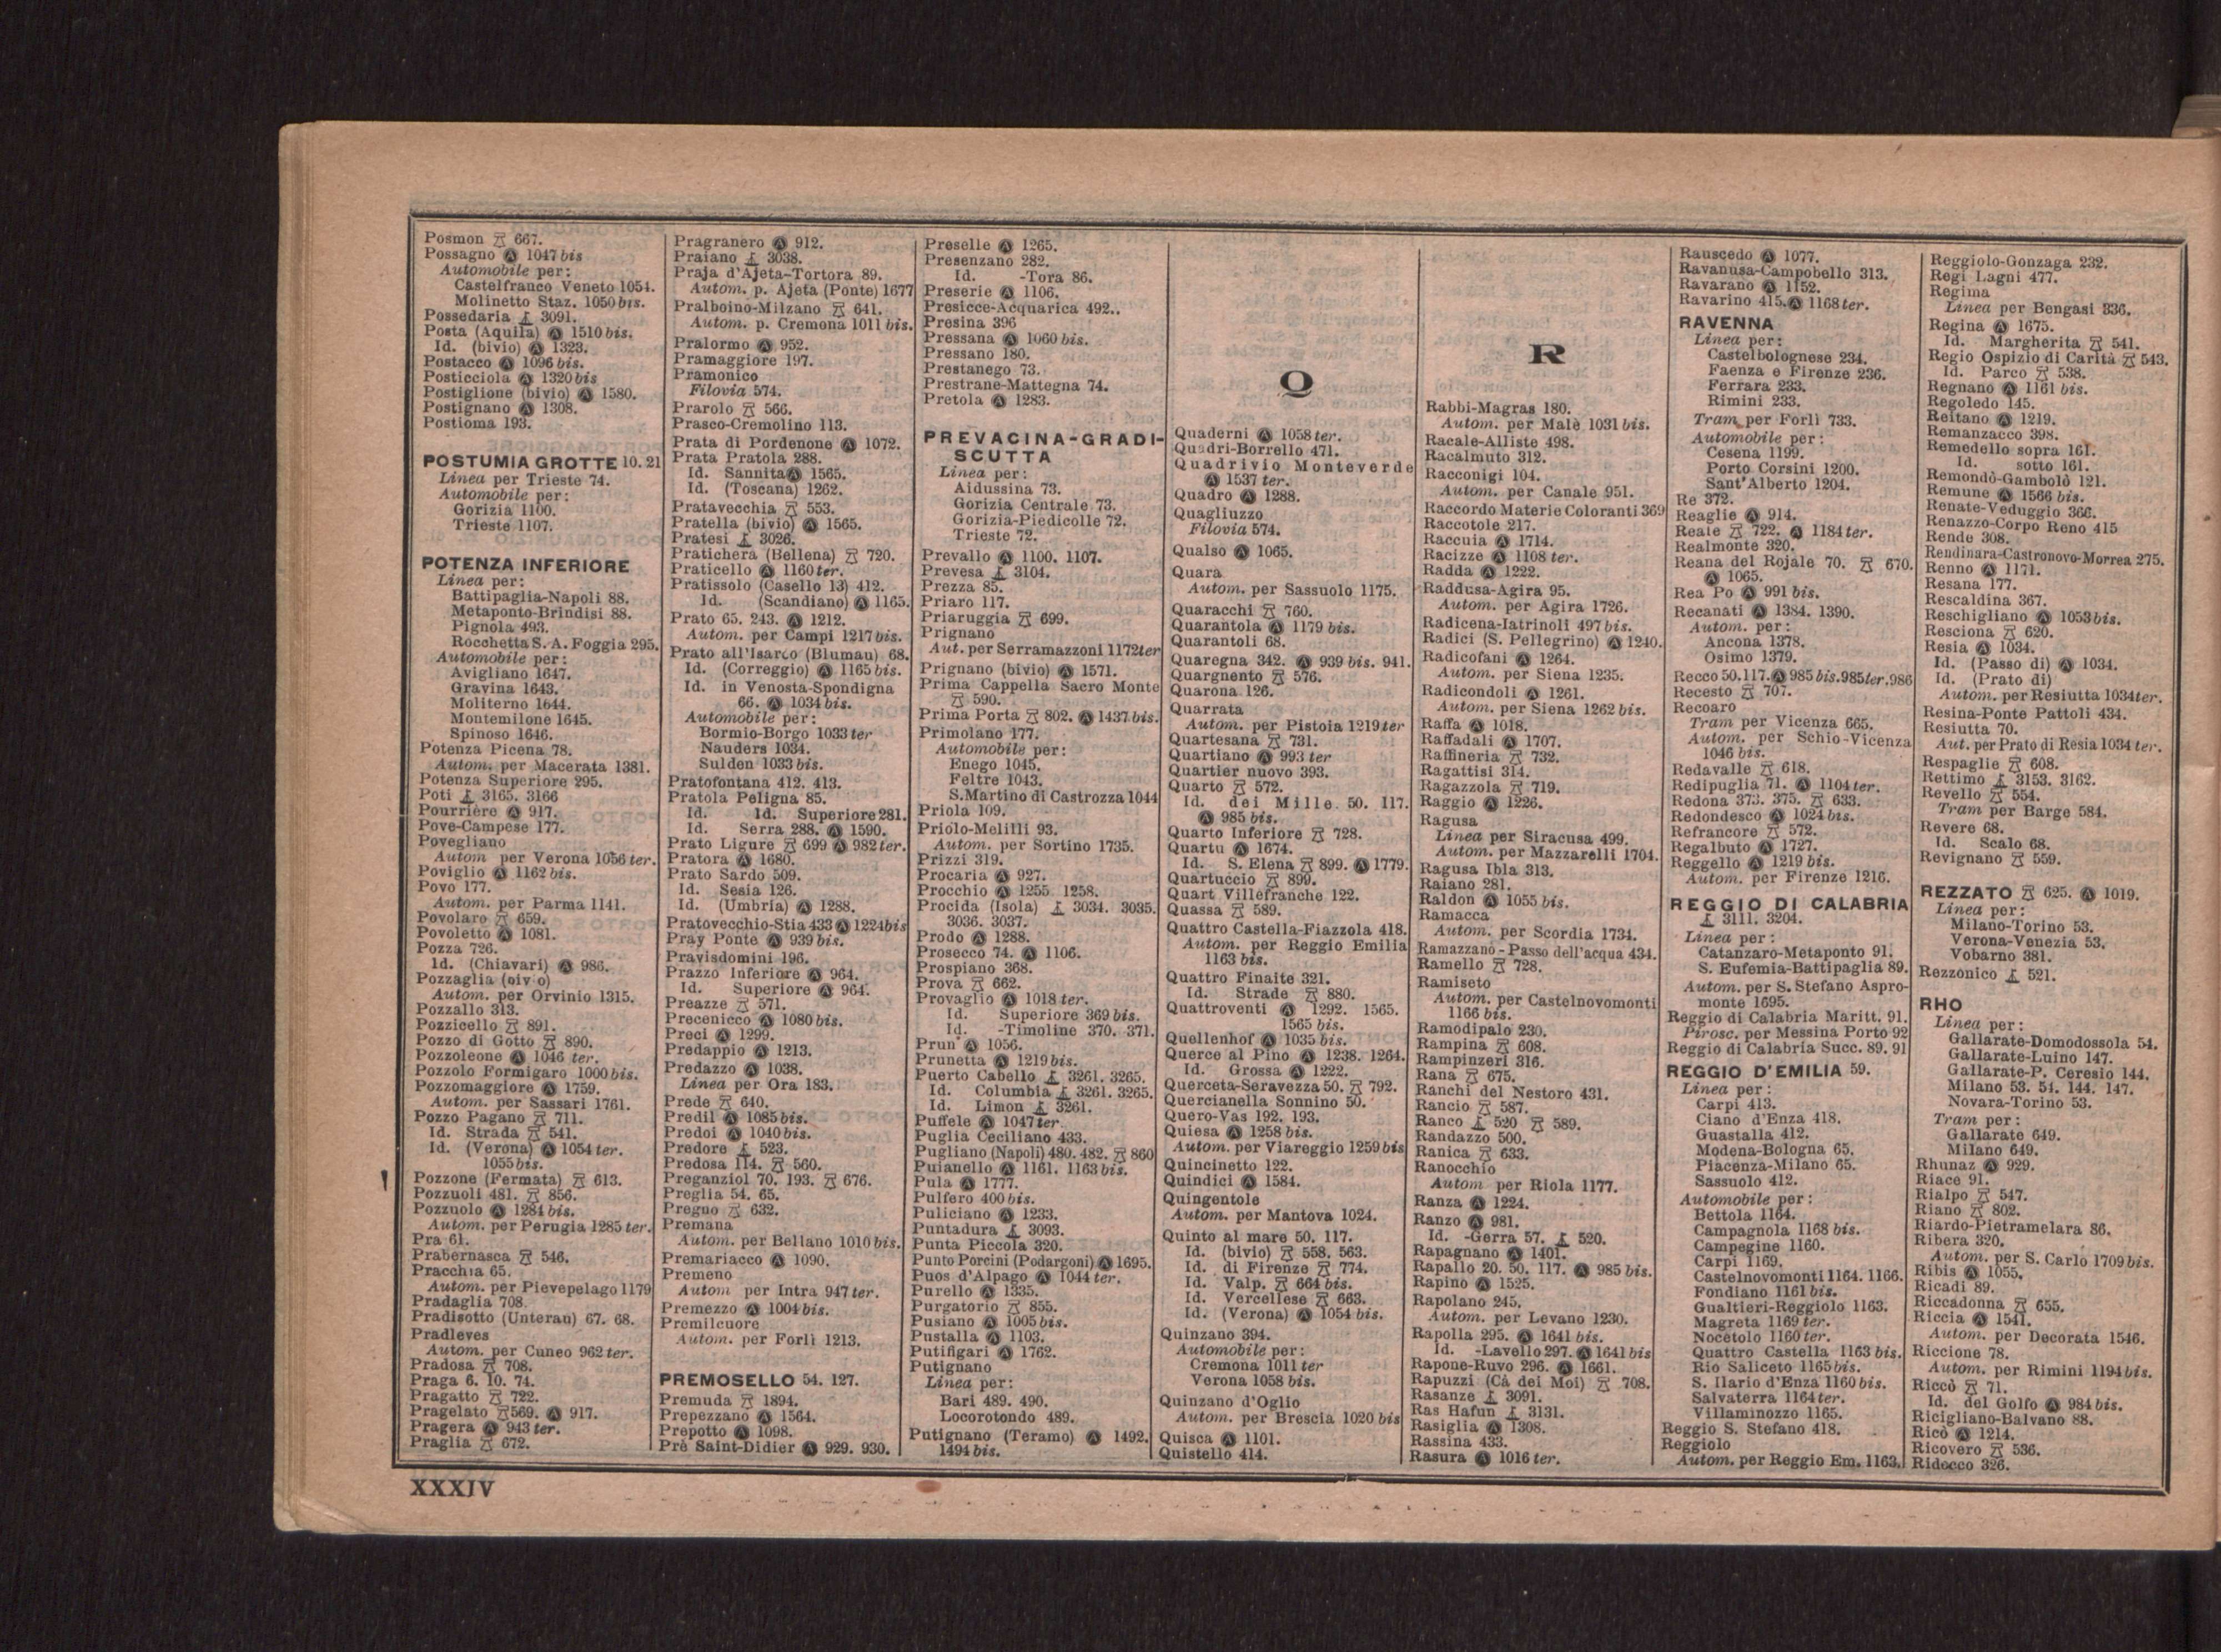 Posmon 667.
Possagno Ⓐ 1047 bis
Automobile per:
Castelfranco Veneto 1054.
Molinetto Staz. 1050 bis.
Possedaria 3091.
Posta (Aquila) Ⓐ 1510 bis.
Id. (bivio) Ⓐ 1323.
Postacco Ⓐ 1096 bis.
Posticciola Ⓐ 1320 bis
Postiglione (bivio) Ⓐ 1580.
Postignano Ⓐ 1308.
Postioma 193.
POSTUMIA GROTTE 10. 21
Linea per Trieste 74.
Automobile per:
Gorizia 1100.
Trieste 1107.
POTENZA INFERIORE
Linea per:
Battipaglia-Napoli 88.
Metaponto-Brindisi 88.
Pignola 493.
Rocchetta S. A. Foggia 295.
Automobile per:
Avigliano 1647.
Gravina 1643.
Moliterno 1644.
Montemilone 1645.
Spinoso 1646.
Potenza Picena 78.
Autom. per Macerata 1381.
Potenza Superiore 295.
Poti 3165. 3166
Pourrière Ⓐ 917.
Pove-Campese 177.
Povegliano
Autom per Verona 1056 ter.
Poviglio Ⓐ 1162 bis.
Povo 177.
Autom. per Parma 1141.
Povolaro 659.
Povoletto Ⓐ 1081.
Pozza 726.
Id. (Chiavari) Ⓐ 986.
Pozzaglia (bivio)
Autom. per Orvinio 1315.
Pozzallo 313.
Pozzicello 891.
Pozzo di Gotto 890.
Pozzoleone Ⓐ 1046 ter.
Pozzolo Formigaro 1000 bis.
Pozzomaggiore Ⓐ 1759.
Autom. per Sassari 1761.
Pozzo Pagano 711.
Id. Strada 541.
Id. (Verona) Ⓐ 1054 ter.
1055 bis.
Pozzone (Fermata) 613.
Pozzuoli 481. 856.
Pozzuolo Ⓐ 1284 bis.
Autom. per Perugia 1285 ter.
Pra 61.
Prabernasca 546.
Pracchia 65.
Autom. per Pievepelago 1179
Pradaglia 708.
Pradisotto (Unterau) 67. 68.
Pradleves
Autom. per Cuneo 962 ter.
Pradosa 708.
Praga 6. 10. 74.
Pragatto 722.
Pragelato 569. Ⓐ 917.
Pragera Ⓐ 943 ter.
Praglia 672.
Pragranero Ⓐ 912.
Praiano 3038.
Praja d'Ajeta-Tortora 89.
Autom. p. Ajeta (Ponte) 1677
Pralboino-Milzano 641.
Autom. p. Cremona 1011 bis.
Pralormo Ⓐ 952.
Pramaggiore 197.
Pramonico
Filovia 574.
Prarolo 566.
Prasco-Cremolino 113.
Prata di Pordenone Ⓐ 1072.
Prata Pratola 288.
Id. Sannita Ⓐ 1565.
Id. (Toscana) 1262.
Pratavecchia 553.
Pratella (bivio) Ⓐ 1565.
Pratesi 3026.
Pratichera (Bellena) 720.
Praticello Ⓐ 1160 ter.
Pratissolo (Casello 13) 412.
Id. (Scandiano) Ⓐ 1165.
Prato 65. 243. Ⓐ 1212.
Autom. per Campi 1217 bis.
Prato all'Isarco (Blumau) 68.
Id. (Correggio) Ⓐ 1165 bis.
Id. in Venosta-Spondigna
66. Ⓐ 1034 bis.
Automobile per:
Bormio-Borgo 1033 ter
Nauders 1034.
Sulden 1033 bis.
Pratofontana 412. 413.
Pratola Peligna 85.
Id. Id. Superiore 281.
Id. Serra 288. Ⓐ 1590.
Prato Ligure 699 Ⓐ 982 ter.
Pratora Ⓐ 1680.
Prato Sardo 509.
Id. Sesia 126.
Id. (Umbria) Ⓐ 1288.
Pratovecchio-Stia 433 Ⓐ 1224 bis
Pray Ponte Ⓐ 939 bis.
Pravisdomini 196.
Prazzo Inferiore Ⓐ 964.
Id. Superiore Ⓐ 964.
Preazze 571.
Precenicco Ⓐ 1080 bis.
Preci Ⓐ 1299.
Predappio Ⓐ 1213.
Predazzo Ⓐ 1038.
Linea per Ora 183.
Prede 640.
Predil Ⓐ 1085 bis.
Predoi Ⓐ 1040 bis.
Predore 523.
Predosa 114. 560.
Preganziol 70. 193. 676.
Preglia 54. 65.
Pregno 632.
Premana
Autom. per Bellano 1010 bis.
Premariacco Ⓐ 1090.
Premeno
Autom per Intra 947 ter.
Premezzo Ⓐ 1004 bis.
Premilcuore
Autom. per Forlì 1213.
PREMOSELLO 54. 127.
Premuda 1894.
Prepezzano Ⓐ 1564.
Prepotto Ⓐ 1098.
Prè Saint-Didier Ⓐ 929. 930.
Preselle Ⓐ 1265.
Presenzano 282.
Id. -Tora 86.
Preserie Ⓐ 1106.
Presicce-Acquarica 492..
Presina 396
Pressana Ⓐ 1060 bis.
Pressano 180.
Prestanego 73.
Prestrane-Mattegna 74.
Pretola Ⓐ 1283.
PREVACINA-GRADI-
SCUTTA
Linea per:
Aidussina 73.
Gorizia Centrale 73.
Gorizia-Piedicolle 72.
Trieste 72.
Prevallo Ⓐ 1100. 1107.
Prevesa 3104.
Prezza 85.
Priaro 117.
Priaruggia 699.
Prignano
Aut. per Serramazzoni 1172 ter
Prignano (bivio) Ⓐ 1571.
Prima Cappella Sacro Monte
590.
Prima Porta 802. Ⓐ 1437 bis.
Primolano 177.
Automobile per:
Enego 1045.
Feltre 1043.
S. Martino di Castrozza 1044
Priola 109.
Priolo-Melilli 93.
Autom. per Sortino 1735.
Prizzi 319.
Procaria Ⓐ 927.
Procchio Ⓐ 1255 1258.
Procida (Isola) 3034. 3035.
3036. 3037.
Prodo Ⓐ 1288.
Prosecco 74. Ⓐ 1106.
Prospiano 368.
Prova 662.
Provaglio Ⓐ 1018 ter.
Id. Superiore 369 bis.
Id. -Timoline 370. 371.
Prun Ⓐ 1056.
Prunetta Ⓐ 1219 bis.
Puerto Cabello 3261. 3265.
Id. Columbia 3261. 3265.
Id. Limon 3261.
Puffele Ⓐ 1047 ter.
Puglia Ceciliano 433.
Pugliano (Napoli) 480. 482. 860
Puianello Ⓐ 1161. 1163 bis.
Pula Ⓐ 1777.
Pulfero 400 bis.
Puliciano Ⓐ 1233.
Puntadura 3093.
Punta Piccola 320.
Punto Porcini (Podargoni) Ⓐ 1695.
Puos d'Alpago Ⓐ 1044 ter.
Purello Ⓐ 1335.
Purgatorio 855.
Pusiano Ⓐ 1005 bis.
Pustalla Ⓐ 1103.
Putifigari Ⓐ 1762.
Putignano
Linea per:
Bari 489. 490.
Locorotondo 489.
Putignano (Teramo) Ⓐ 1492.
1494 bis.
Q
Quaderni Ⓐ 1058 ter.
Quadri-Borrello 471.
Quadrivio Monteverde
Ⓐ 1537 ter.
Quadro Ⓐ 1288.
Quagliuzzo
Filovia 574.
Qualso Ⓐ 1065.
Quara
Autom. per Sassuolo 1175.
Quaracchi 760.
Quarantola Ⓐ 1179 bis.
Quarantoli 68.
Quaregna 342. Ⓐ 939 bis. 941.
Quargnento 576.
Quarona 126.
Quarrata
Autom. per Pistoia 1219 ter
Quartesana 731.
Quartiano Ⓐ 993 ter
Quartier nuovo 393.
Quarto 572.
Id. dei Mille 50. 117.
Ⓐ 985 bis.
Quarto Inferiore 728.
Quartu Ⓐ 1674.
Id. S. Elena 899. Ⓐ 1779.
Quartuccio 899.
Quart Villefranche 122.
Quassa 589.
Quattro Castella-Fiazzola 418.
Autom. per Reggio Emilia
1163 bis.
Quattro Finaite 321.
Id. Strade 880.
Quattroventi Ⓐ 1292. 1565.
1565 bis.
Quellenhof Ⓐ 1035 bis.
Querce al Pino Ⓐ 1238. 1264.
Id. Grossa Ⓐ 1222.
Querceta-Seravezza 50. 792.
Quercianella Sonnino 50.
Quero-Vas 192. 193.
Quiesa Ⓐ 1258 bis.
Autom. per Viareggio 1259 bis
Quincinetto 122.
Quindici Ⓐ 1584.
Quingentole
Autom. per Mantova 1024.
Quinto al mare 50. 117.
Id. (bivio) 558. 563.
Id. di Firenze 774.
Id. Valp. 664 bis.
Id. Vercellese 663.
Id. (Verona) Ⓐ 1054 bis.
Quinzano 394.
Automobile per:
Cremona 1011 ter
Verona 1058 bis.
Quinzano d'Oglio
Autom. per Brescia 1020 bis
Quisca Ⓐ 1101.
Quistello 414.
R
Rabbi-Magras 180.
Autom. per Malè 1031 bis.
Racale-Alliste 498.
Racalmuto 312.
Racconigi 104.
Autom. per Canale 951.
Raccordo Materie Coloranti 369
Raccotole 217.
Raccuia Ⓐ 1714.
Racizze Ⓐ 1108 ter.
Radda Ⓐ 1222.
Raddusa-Agira 95.
Autom. per Agira 1726.
Radicena-Iatrinoli 497 bis.
Radici (S. Pellegrino) Ⓐ 1240.
Radicofani Ⓐ 1264.
Autom. per Siena 1235.
Radicondoli Ⓐ 1261.
Autom. per Siena 1262 bis.
Raffa Ⓐ 1018.
Raffadali Ⓐ 1707.
Raffineria 732.
Ragattisi 314.
Ragazzola 719.
Raggio Ⓐ 1226.
Ragusa
Linea per Siracusa 499.
Autom. per Mazzarelli 1704.
Ragusa Ibla 313.
Raiano 281.
Raldon Ⓐ 1055 bis.
Ramacca
Autom. per Scordia 1734.
Ramazzano-Passo dell'acqua 434.
Ramello 728.
Ramiseto
Autom. per Castelnovomonti
1166 bis.
Ramodipalo 230.
Rampina 608.
Rampinzeri 316.
Rana 675.
Ranchi del Nestoro 431.
Rancio 587.
Ranco 520 589.
Randazzo 500.
Ranica 633.
Ranocchio
Autom per Riola 1177.
Ranza Ⓐ 1224.
Ranzo Ⓐ 981.
Id. -Gerra 57. 520.
Rapagnano Ⓐ 1401.
Rapallo 20. 50. 117. Ⓐ 985 bis.
Rapino Ⓐ 1525.
Rapolano 245.
Autom. per Levano 1230.
Rapolla 295. Ⓐ 1641 bis.
Id. -Lavello 297. Ⓐ 1641 bis
Rapone-Ruvo 296. Ⓐ 1661.
Rapuzzi (Cà dei Moi) 708.
Rasanze 3091.
Ras Hafun 3131.
Rasiglia Ⓐ 1308.
Rassina 433.
Rasura Ⓐ 1016 ter.
Rauscedo Ⓐ 1077.
Ravanusa-Campobello 313.
Ravarano Ⓐ 1152.
Ravarino 415. Ⓐ 1168 ter.
RAVENNA
Linea per:
Castelbolognese 234.
Faenza e Firenze 236.
Ferrara 233.
Rimini 233.
Tram per Forlì 733.
Automobile per:
Cesena 1199.
Porto Corsini 1200.
Sant'Alberto 1204.
Re 372.
Reaglie Ⓐ 914.
Reale 722. Ⓐ 1184 ter.
Realmonte 320.
Reana del Rojale 70. 670.
Ⓐ 1065.
Rea Po Ⓐ 991 bis.
Recanati Ⓐ 1384. 1390.
Autom. per:
Ancona 1378.
Osimo 1379.
Recco 50. 117. Ⓐ 985 bis. 985 ter. 986
Recesto 707.
Recoaro
Tram per Vicenza 665.
Autom. per Schio-Vicenza
1046 bis.
Redavalle 618.
Redipuglia 71. Ⓐ 1104 ter.
Redona 373. 375. 633.
Redondesco Ⓐ 1024 bis.
Refrancore 572.
Regalbuto Ⓐ 1727.
Reggello Ⓐ 1219 bis.
Autom. per Firenze 1216.
REGGIO DI CALABRIA
3111. 3204.
Linea per:
Catanzaro-Metaponto 91.
S. Eufemia-Battipaglia 89.
Autom. per S. Stefano Aspro-
monte 1695.
Reggio di Calabria Maritt. 91.
Pirosc. per Messina Porto 92
Reggio di Calabria Succ. 89. 91
REGGIO D'EMILIA 59.
Linea per:
Carpi 413.
Ciano d'Enza 418.
Guastalla 412.
Modena-Bologna 65.
Piacenza-Milano 65.
Sassuolo 412.
Automobile per:
Bettola 1164.
Campagnola 1168 bis.
Campegine 1160.
Carpi 1169.
Castelnovomonti 1164. 1166.
Fondiano 1161 bis.
Gualtieri-Reggiolo 1163.
Magreta 1169 ter.
Nocetolo 1160 ter.
Quattro Castella 1163 bis.
Rio Saliceto 1165 bis.
S. Ilario d'Enza 1160 bis.
Salvaterra 1164 ter.
Villaminozzo 1165.
Reggio S. Stefano 418.
Reggiolo
Autom. per Reggio Em. 1163.
Reggiolo-Gonzaga 232.
Regi Lagni 477.
Regima
Linea per Bengasi 336.
Regina Ⓐ 1675.
Id. Margherita 541.
Regio Ospizio di Carità 543.
Id. Parco 538.
Regnano Ⓐ 1161 bis.
Regoledo 145.
Reitano Ⓐ 1219.
Remanzacco 398.
Remedello sopra 161.
Id. sotto 161.
Remondò-Gambolò 121.
Remune Ⓐ 1566 bis.
Renate-Veduggio 366.
Renazzo-Corpo Reno 415
Rende 308.
Rendinara-Castronovo-Morrea 275.
Renno Ⓐ 1171.
Resana 177.
Rescaldina 367.
Reschigliano Ⓐ 1053 bis.
Resciona 620.
Resia Ⓐ 1034.
Id. (Passo di) Ⓐ 1034.
Id. (Prato di)
Autom. per Resiutta 1034 ter.
Resina-Ponte Pattoli 434.
Resiutta 70.
Aut. per Prato di Resia 1034 ter.
Respaglie 608.
Rettimo 3153. 3162.
Revello 554.
Tram per Barge 584.
Revere 68.
Id. Scalo 68.
Revignano 559.
REZZATO 625. Ⓐ 1019.
Linea per:
Milano-Torino 53.
Verona-Venezia 53.
Vobarno 381.
Rezzonico 521.
RHO
Linea per:
Gallarate-Domodossola 54.
Gallarate-Luino 147.
Gallarate-P. Ceresio 144.
Milano 53. 54. 144. 147.
Novara-Torino 53.
Tram per:
Gallarate 649.
Milano 649.
Rhunaz Ⓐ 929.
Riace 91.
Rialpo 547.
Riano 802.
Riardo-Pietramelara 86.
Ribera 320.
Autom. per S. Carlo 1709 bis.
Ribis Ⓐ 1055.
Ricadi 89.
Riccadonna 655.
Riccia Ⓐ 1541.
Autom. per Decorata 1546.
Riccione 78.
Autom. per Rimini 1194 bis.
Riccò 71.
Id. del Golfo Ⓐ 984 bis.
Ricigliano-Balvano 88.
Ricò Ⓐ 1214.
Ricovero 536.
Ridocco 326.
XXXIV